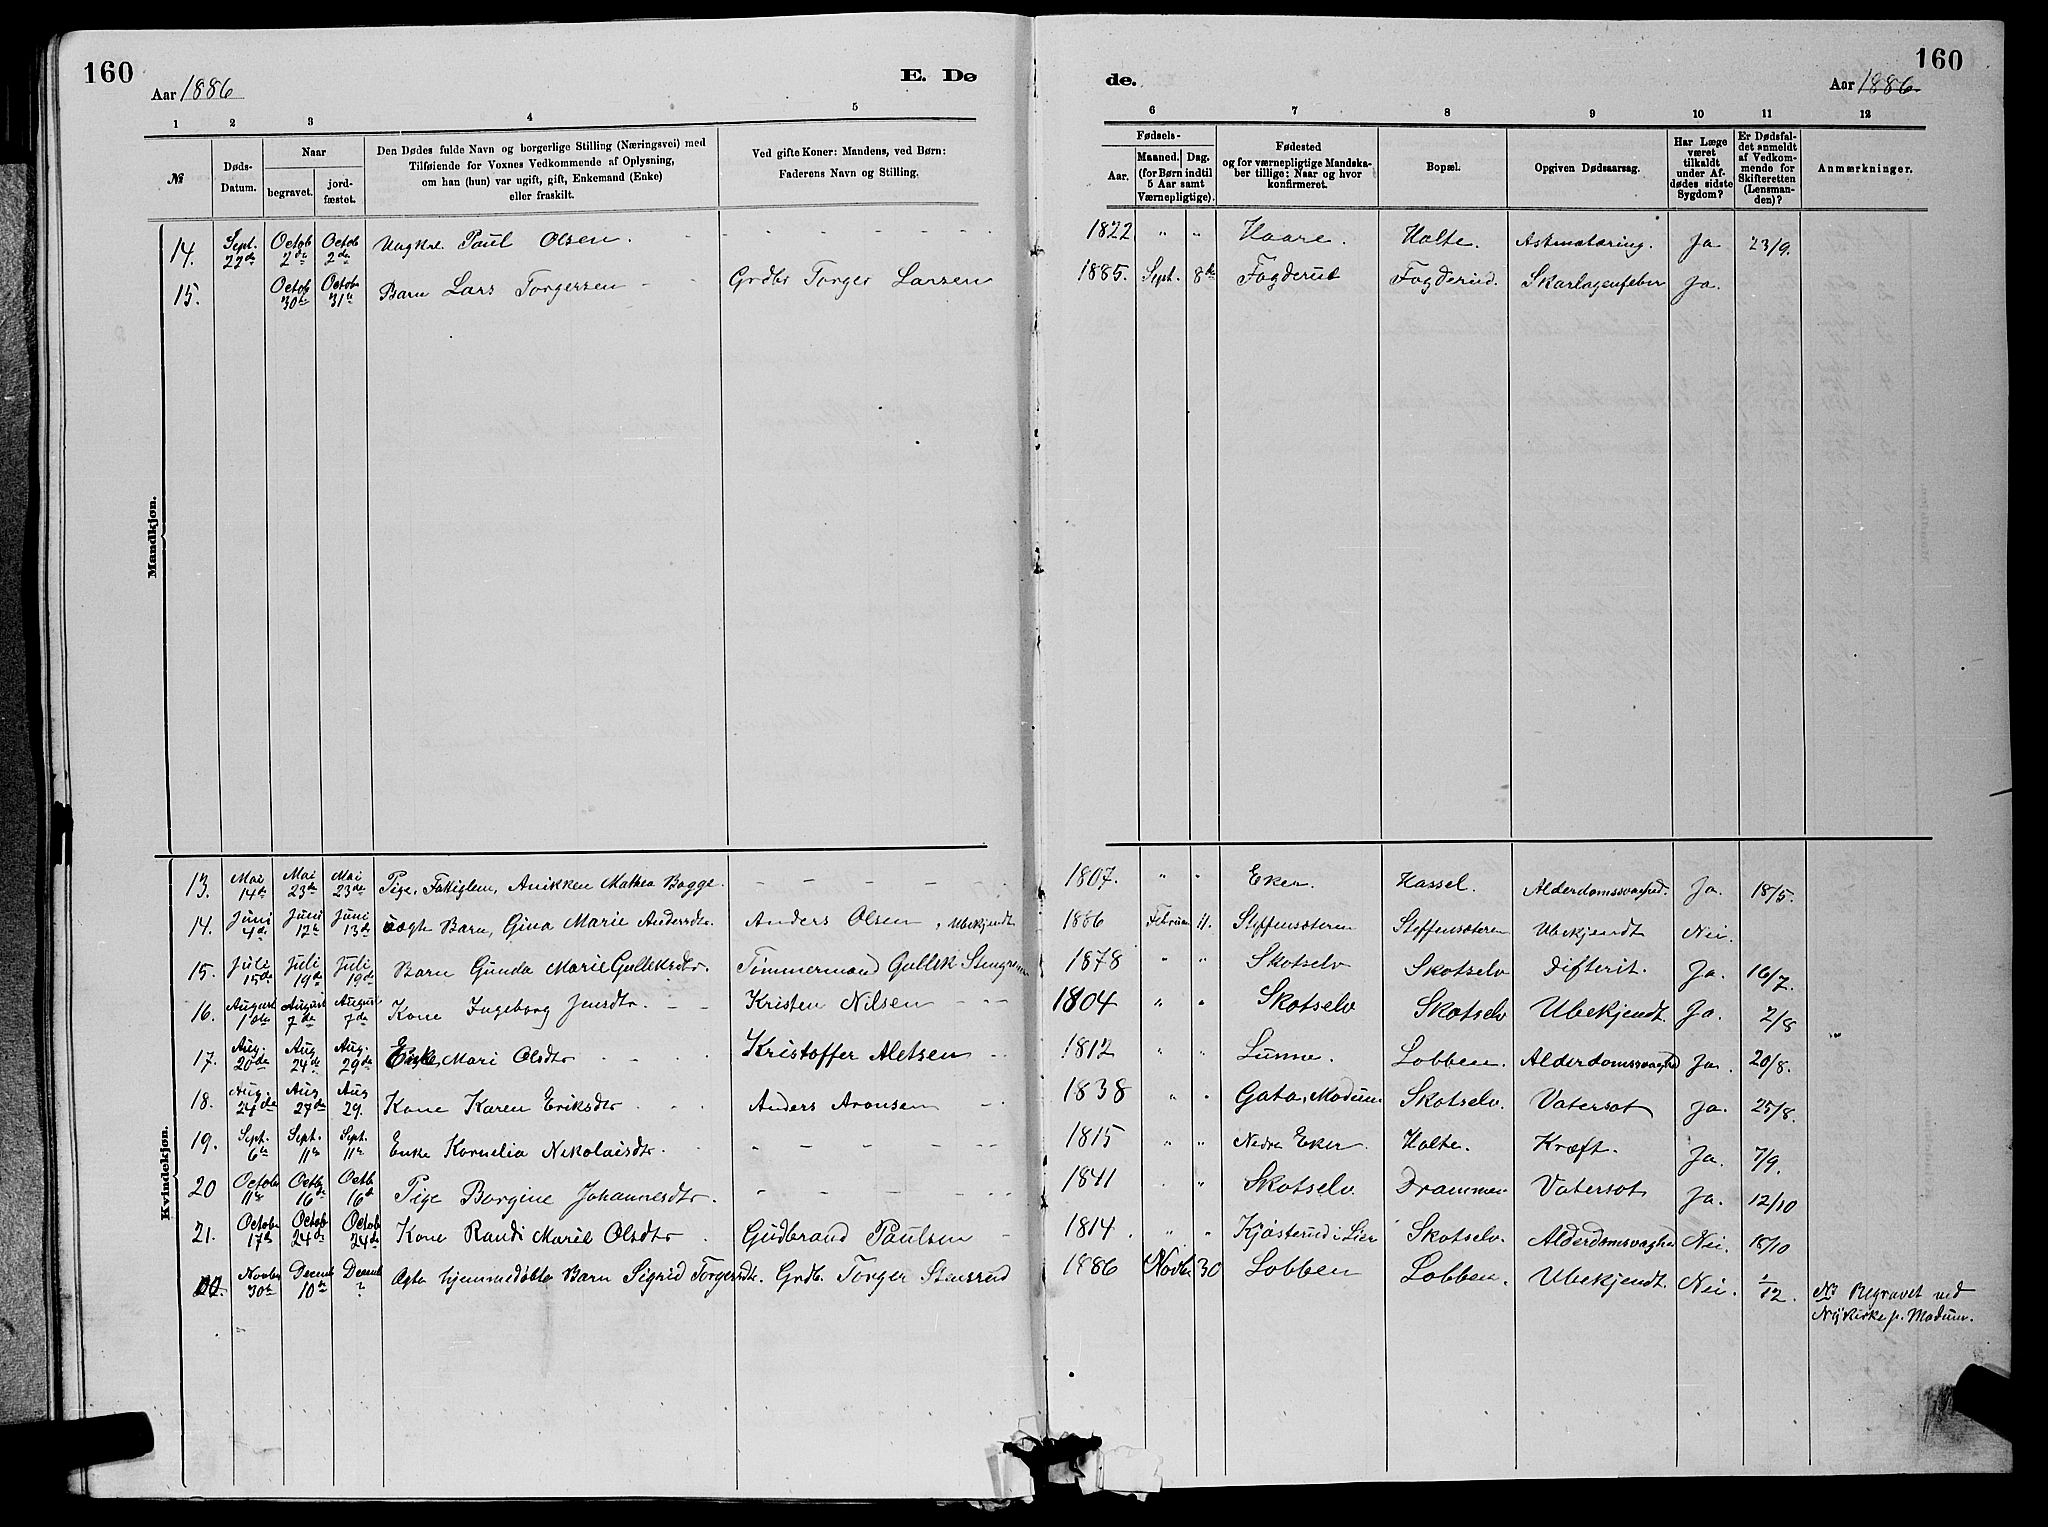 160
Aar 1886
E. Dø
de.
160
Aar 1886.
1 2 3 4 5 6 7 8 9 10 11 12
№
Døds-
Datum.
Naar
begravet.
jord-
fæstet.
Den Dødes fulde Navn og borgerlige Stilling (Næringsvei) med
Tilføiende for Voxnes Vedkommende af Oplysning,
om han (hun) var ugift, gift, Enkemand (Enke)
eller fraskilt.
Ved gifte Koner: Mandens, ved Børn:
Faderens Navn og Stilling.
Fødsels-
Aar.
Maaned. Dag.
(for Børn indtil
5 Aar samt
Værnepligtige).
Fødested
og for værnepligtige Mandska-
ber tillige: Naar og hvor
konfirmeret.
Bopæl.
Opgiven Dødsaarsag.
Har Læge
været
tilkaldt
under Af-
dødes sidste
Sygdom?
Er Dødsfal-
det anmeldt
af Vedkom-
mende for
Skifteretten
(Lensman-
den)?
Anmærkninger.
Mandkjøn.
14. Sept. 22de Octob 2de Octob 2de Ungkal. Paul Olsen. 1822 " " Haare. Holte. Astmatæring. Ja 23/9.
15. Octob 30te Octob 31te Barn Lars Torgersen Grdbr Torger Larsen 1885. Sept. 8de Fogderut Fogderud. Skarlagenfeber Ja.
Kvindekjøn.
13. Mai 14de Mai 23de Mai 23de Pige, Fattiglem, Anikken Mathea Bagge. 1807. " " Eker. Hassel. Alderdomssvaghed. Ja. 18/5.
14. Juni 4de Juni 12te Juni 13de uægte Barn, Gina Marie Andersdtr. Anders Olsen, Ubekjendt 1886 Februar 11. Steffensæteren Steffensæteren Ubekjendt Nei.
15. Juli 15de Juli 19de Juli 19de Barn Gunda Marie Gulliksdtr. Tømmermand Gullik 1878 " " Skotselv Skotselv Difterit. Ja. 16/7.
16. August 1ste August 7de August 7de Kone Ingeborg Jensdtr Kristen Nilsen 1804 " " Skotselv Skotselv Ubekjendt. Ja. 2/8
17. Aug. 20de Aug 24de Aug. 29de Enke, Mari Olsdtr Kristoffer Aletsen 1812 " " Lunne. Lobben. Alderdomssvaghed Ja. 20/8.
18. Aug. 24de Aug 27de Aug 29. Kone Karen Eriksdtr Anders Aronsen 1838 " " Gata, Modum Skotselv. Vatersot Ja. 25/8.
19. Sept. 6te Sept. 11te Sept. 11te Enke Kornelia Nikolaisdtr. 1815 " " Nedre Eker. Holte. Kræft. Ja. 7/9.
20 Octobr 11te Octb 16de Octb 16d Pige Borgine Johannesdtr. 1841 " " Skotselv. Drammen Vatersot Ja. 12/10
21. Octobr 17de Octob 24de Octob 24de Kone Randi Marie Olsdtr Gudbrand Paulsen 1814. " " Kjøsterud i Lier Skotselv. Alderdomsvaghed Nei. 18/10
22. Novbr 30te Decemb 10de Decemb " Ægte hjemmedøbte Barn Sigrid Torgersdtr. Grdb. Torger Stensrud 1886 Novbr 30 Lobben Lobben. Ubekjendt. Nei. 2/12. NB Begravet ved
Nykirke p. Modum.